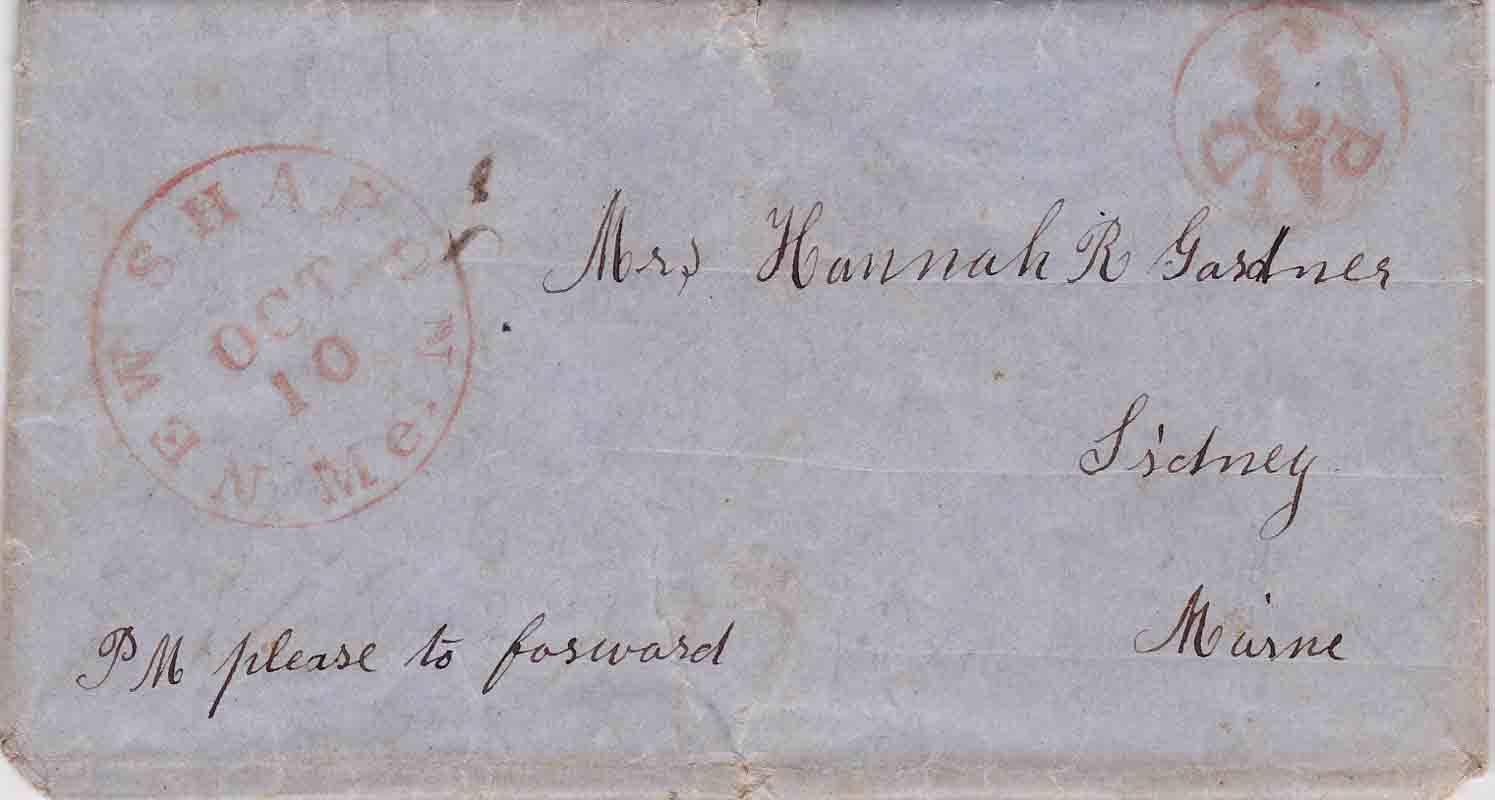 3
PAID
NEW SHARON Me.
OCT
10
Mrs Hannah R Gardner
Sidney
Maine
PM please to forward